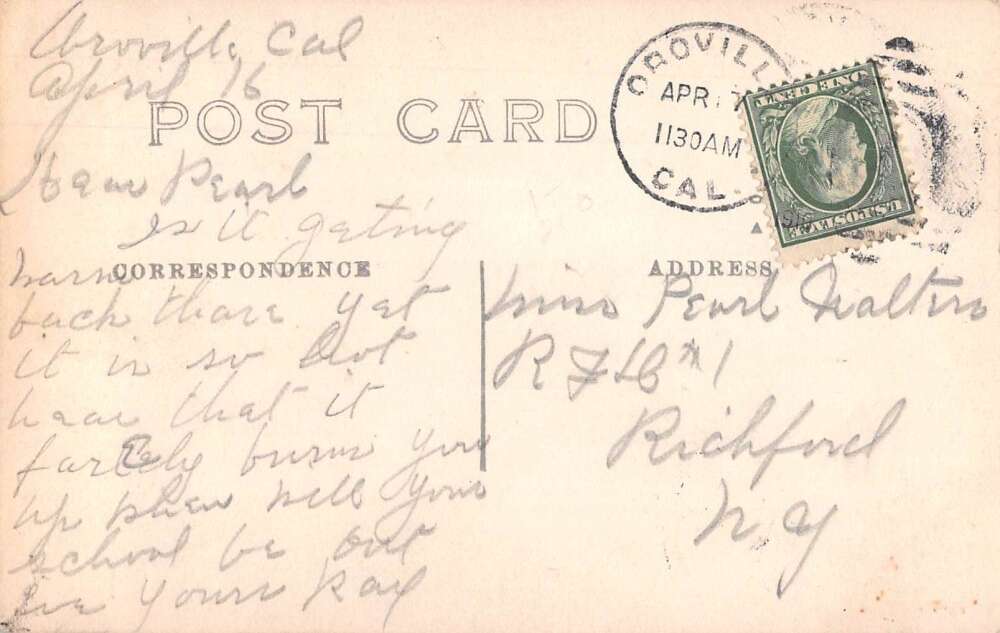 Oroville, Cal
April 16
POST CARD
Dear Pearl
is it geting
warm
CORRESPONDENCE
back thare yet
it is so Hot
hear that it
farely burns you
up when will your
school be out
yours Ray
OROVILL
APR 17
1130AM
CAL.
ONE CENT
U.S. POSTAGE
ADDRESS
Miss Pearl Walters
R F D #1
Richford
N Y